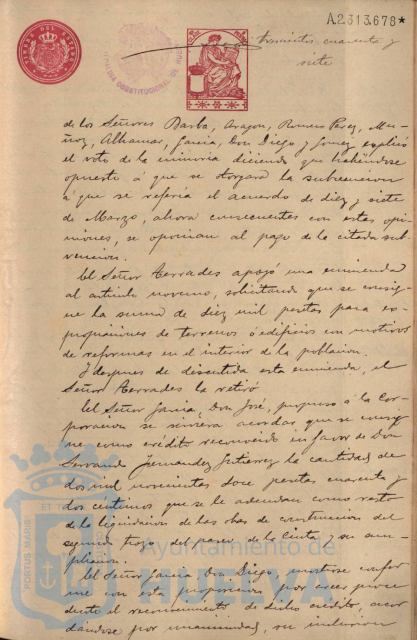 A2313.678*
trescientos cuarenta y
siete
de los Señores Barba, Aragon, Romero Perez, Mu-
ñoz, Alhamar, Garcia, Don Diego y Jimez explicó
el voto de la minoria diciendo que habiéndose
opuesto á que se otorgara la subvencion
á que se referia el acuerdo de diez y siete
de Marzo, ahora consecuentes con estas opi-
niones, se oponian al pago de la citada sub-
vencion.
El Señor Terrades apoyó una enmienda
al articulo noveno, solicitando que se consig-
ne la suma de diez mil pesetas para ex-
propiaciones de terrenos ó edificios con motivos
de reformas en el interior de la poblacion.
Y despues de discutida esta enmienda, el
Señor Terrades la retiró
El Señor Garcia, Don José, propuso á la Cor-
poracion se sirviera acordar, que se consig-
ne como crédito reconocido en favor de Don
Servando Fernandez Gutierrez la cantidad de
dos mil novecientas doce pesetas cuarenta y
dos centimos que se le adeudan como resto
de la liquidacion de las obras de construccion del
segundo trozo del paseo de la Cinta y su am-
pliacion.
El Señor Garcia, Don Diego, mostrose confor-
me con esta proposicion por creer proce-
dente el reconocimiento de dicho crédito, acor-
dándose por unanimidad, su inclusion
PORTUS MARIS
ET
Ayuntamiento de
HUELVA